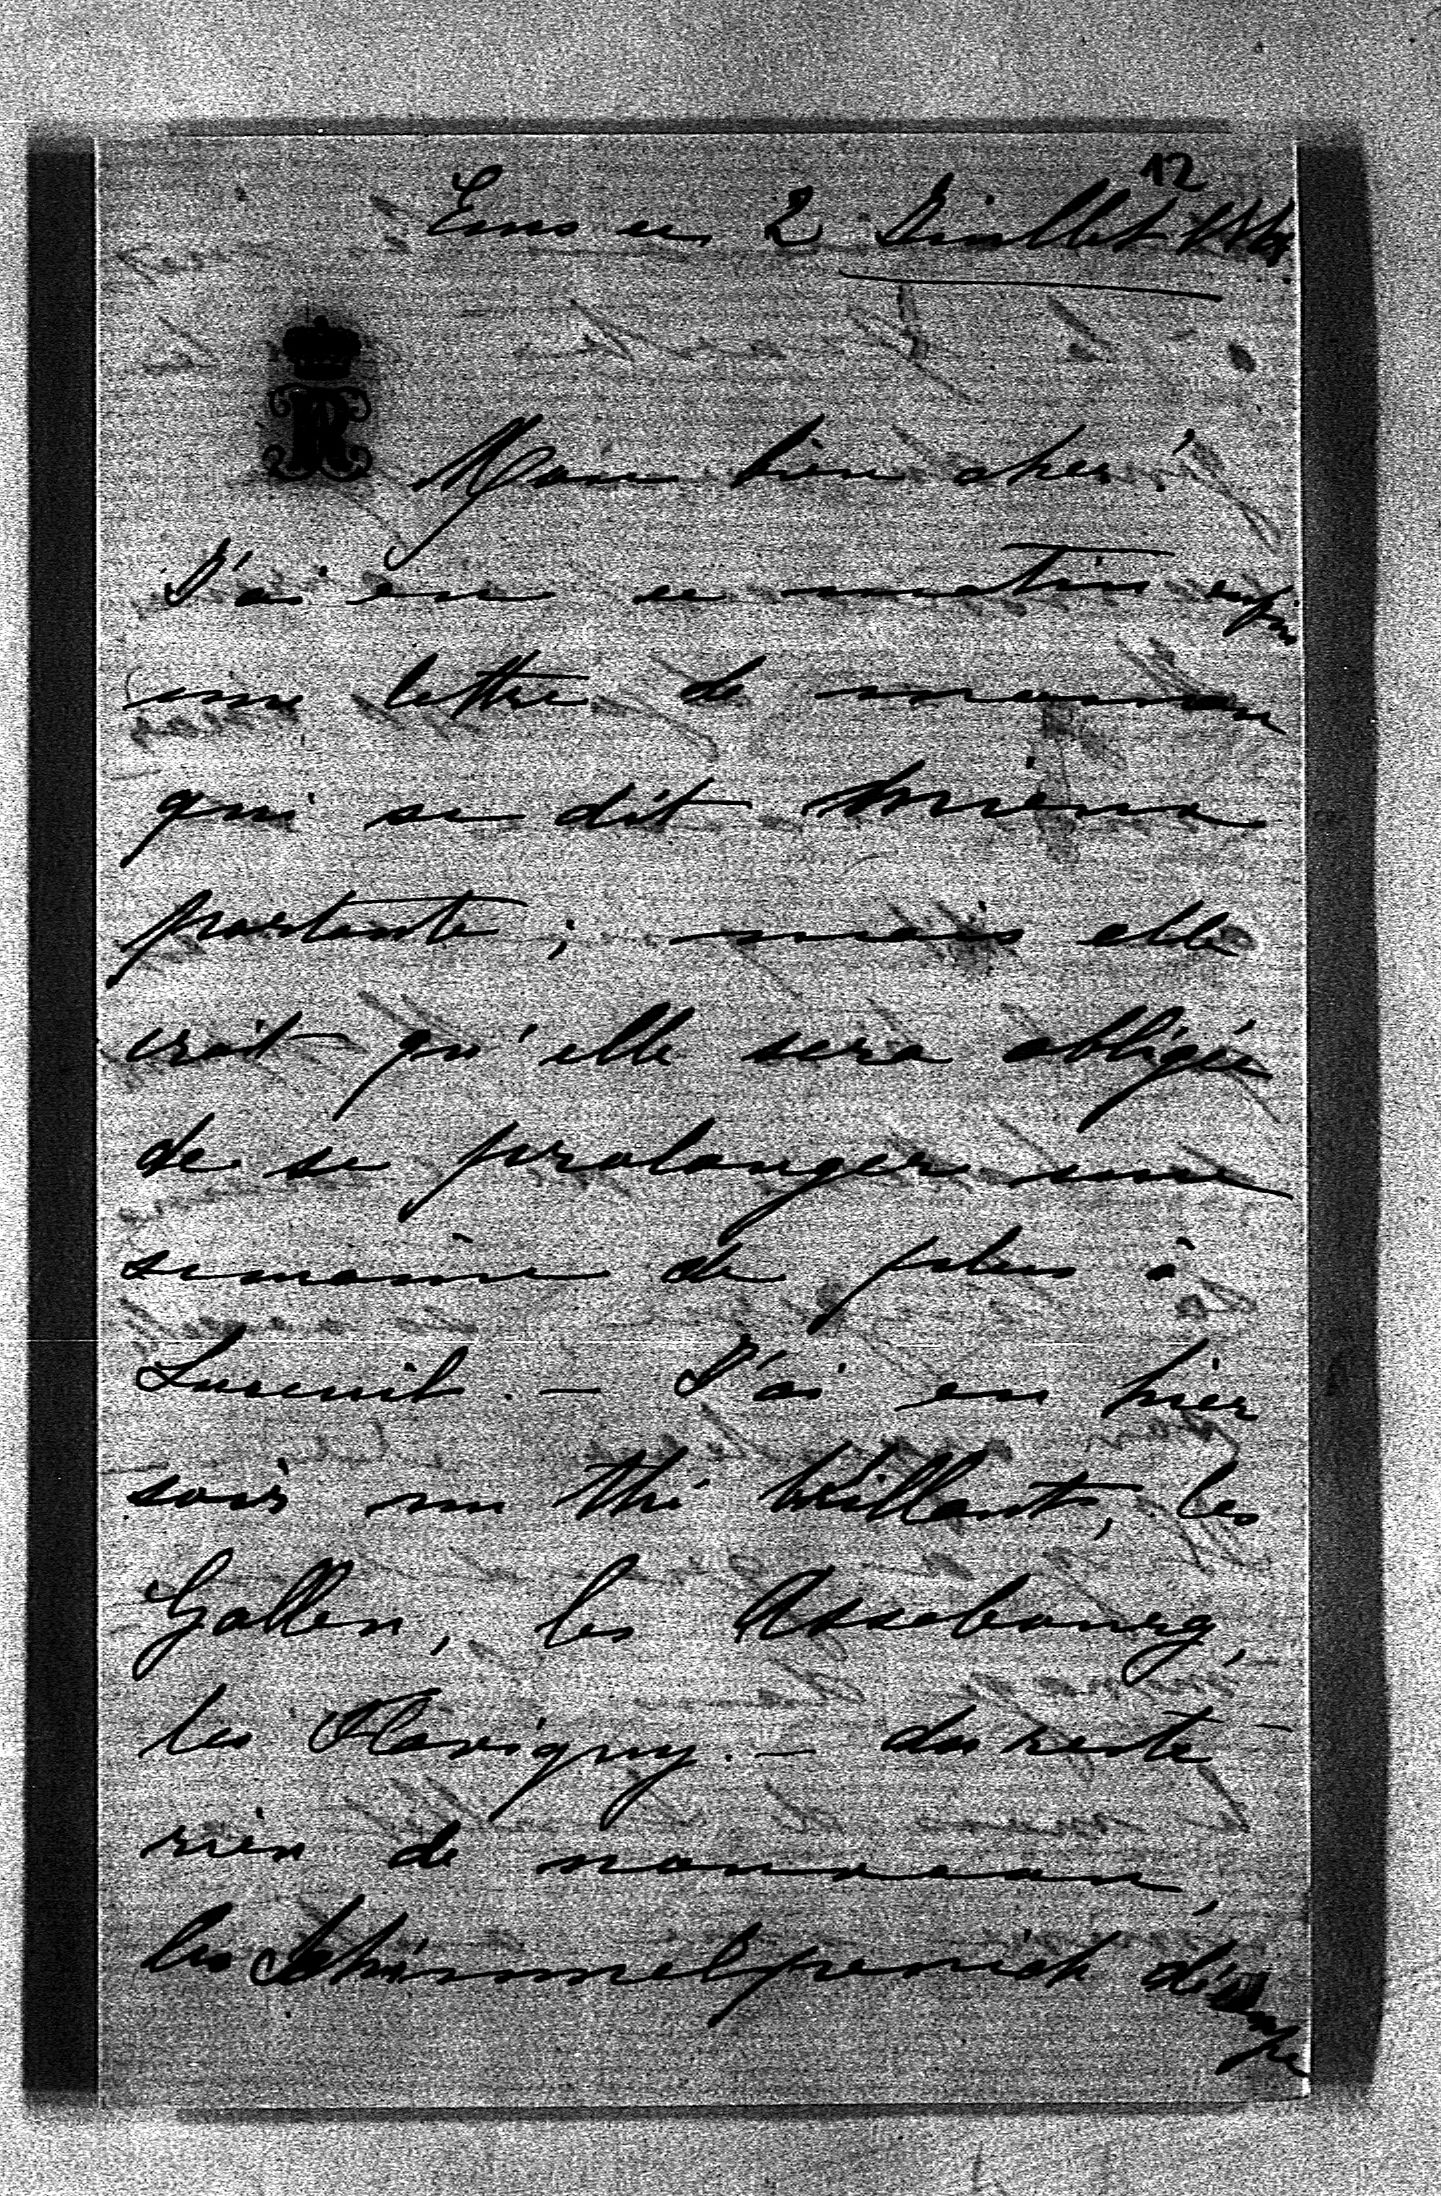 12
Ems ce 2 Juillet
Mon bien cher!
J'ai eu ce matin enfin
une lettre de maman
qui se dit mieux
portante ; mais elle
croit qu'elle sera obligée
de se prolonger une
semaine de plus à
Luxeuil. — J'ai eu hier
soir un thé brillant, les
Gallen, les Assebourg,
les Flavigny. — du reste
rien de nouveau,
les Schimmelpenick